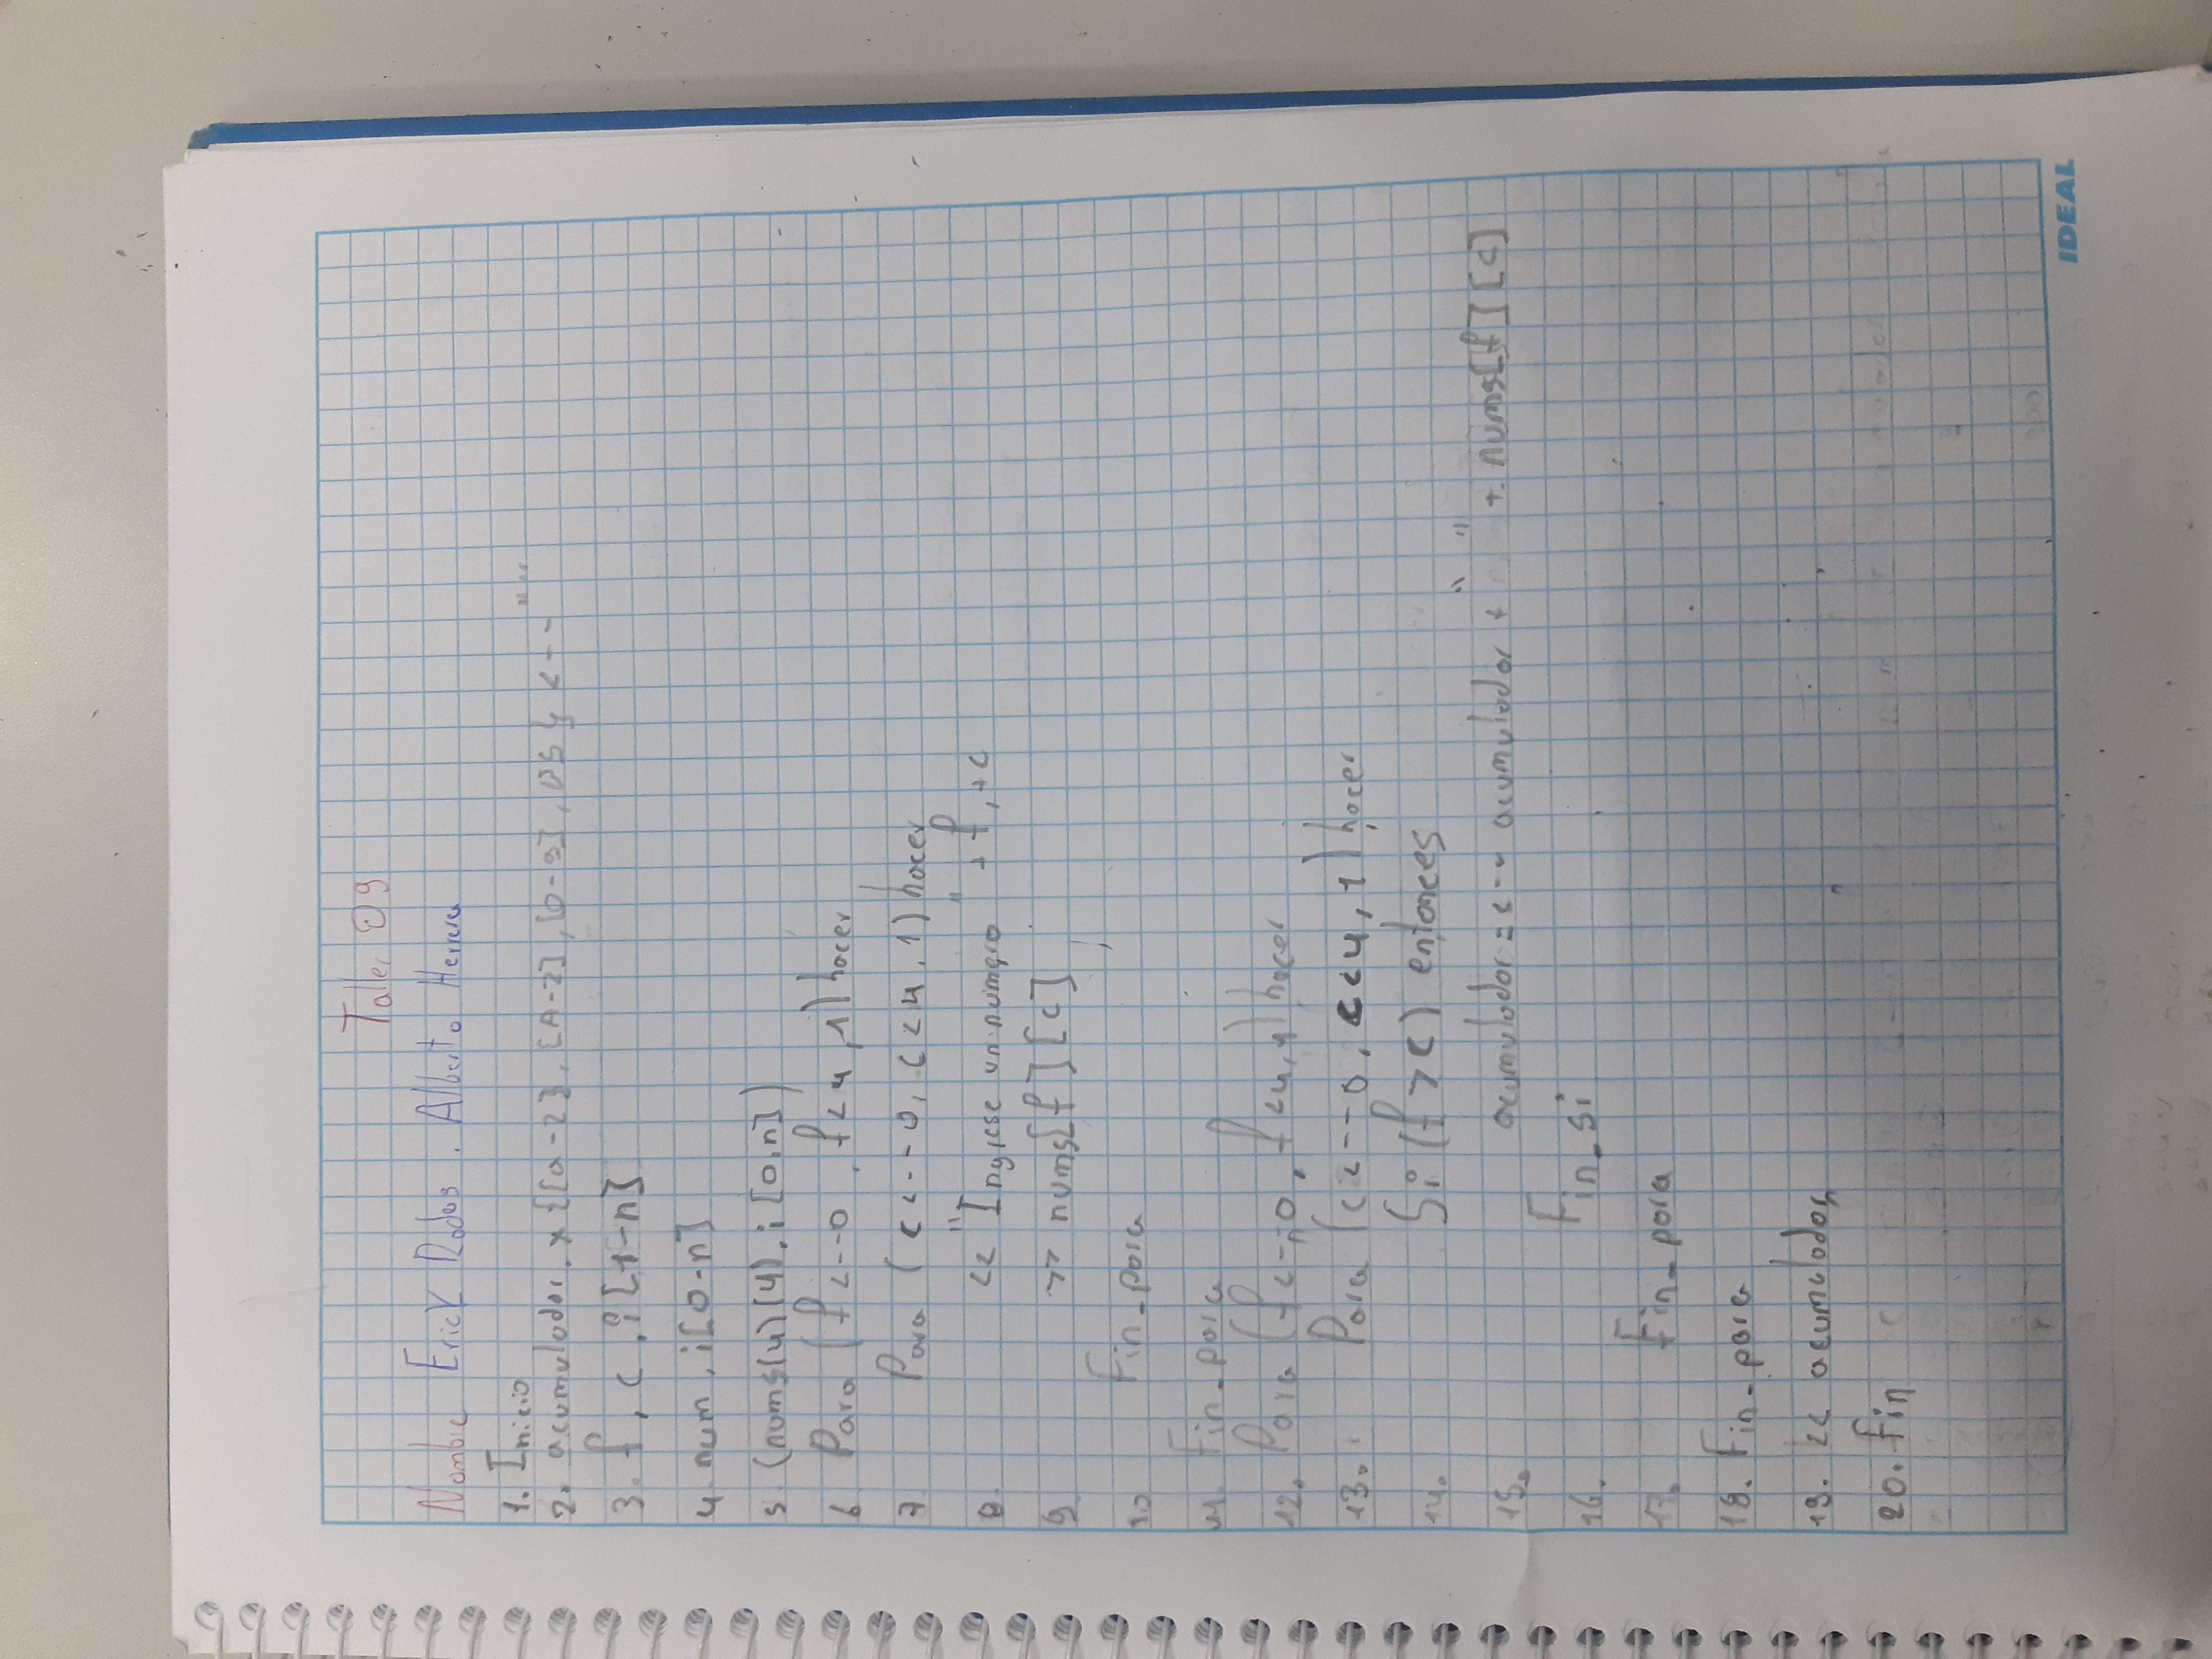 Taller 09
Nombre Erick Rodas . Alberto Herrera
1. Inicio
2. acumulador, x {[a-z], [A-Z], [0-9], DS} <-- ""
3. f, c, i[1-n]
4 num, i[0-n]
5. (nums(4)(4), i [0,n])
6 Para (f <--0, f<4, 1) hacer
7 Para (c <--0, c<4, 1) hacer
8 << "Ingrese un numero" +f, +c
9 >> nums[f][c]
10 Fin_para
11. Fin_para
12. Para (f<--0, f<4, 1) hacer
13. Para (c <--0, c<4, 1) hacer
14. Si (f > c) entonces
15. acumulador = <-- acumulador + " " + nums[f][c]
16. Fin_si
17. Fin_para
18. Fin_para
19. << acumulador
20. Fin
IDEAL